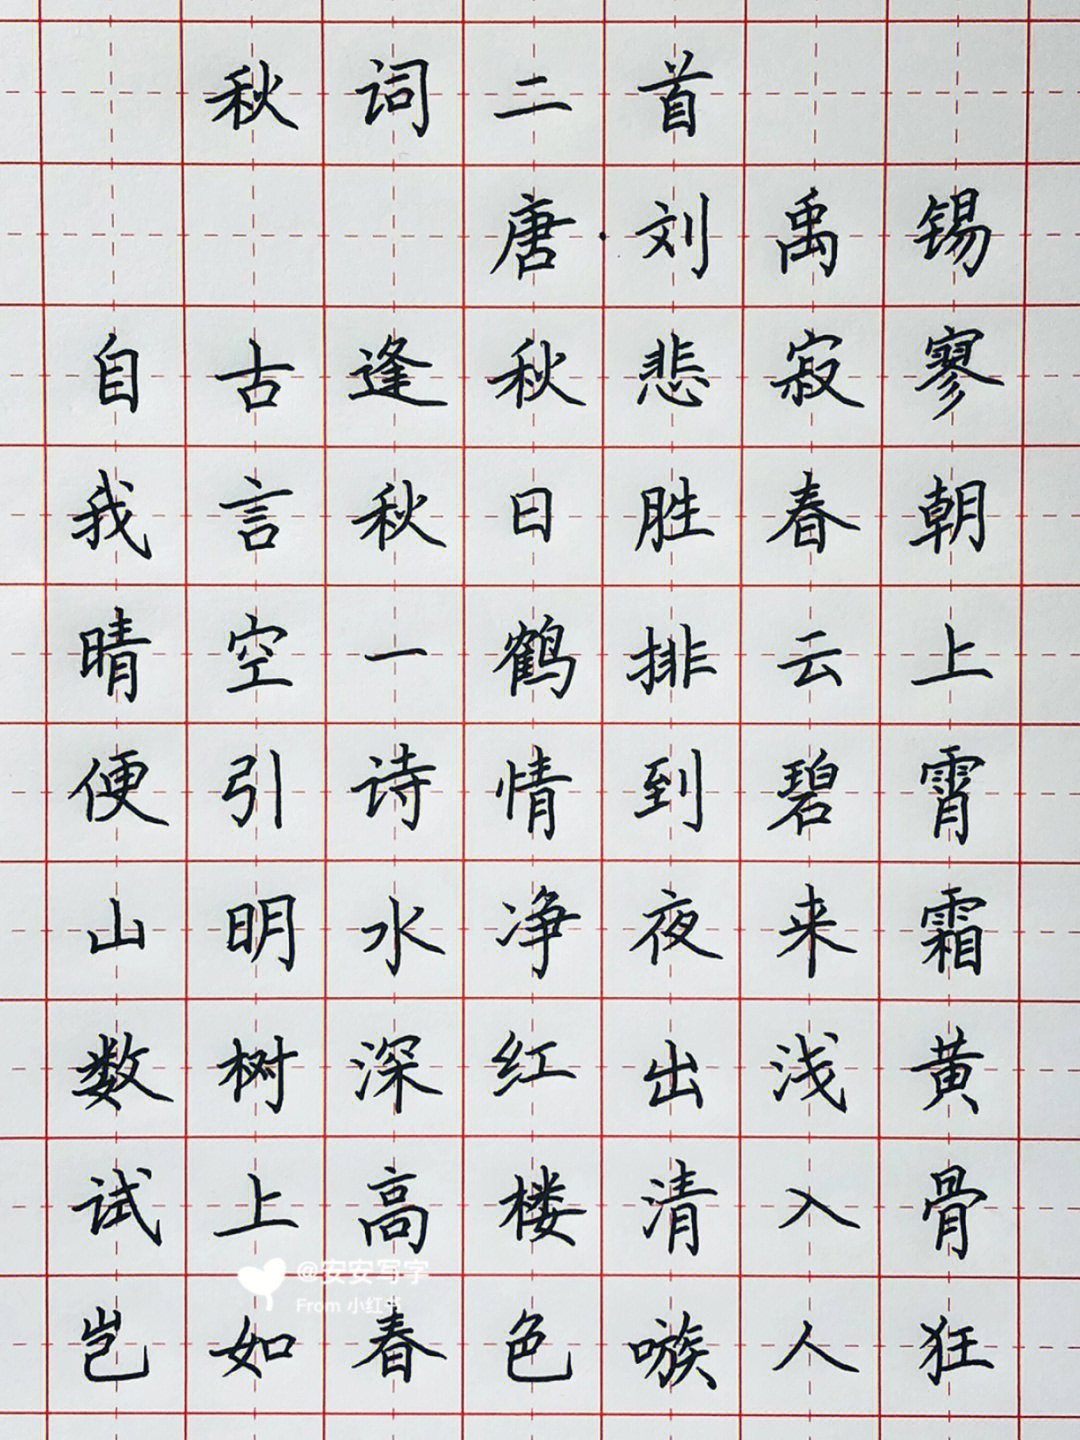 秋词二首
唐·刘禹锡
自古逢秋悲寂寥
我言秋日胜春朝
晴空一鹤排云上
便引诗情到碧霄
山明水净夜来霜
数树深红出浅黄
试上高楼清入骨
@安安写字
From 小红书
岂如春色嗾人狂